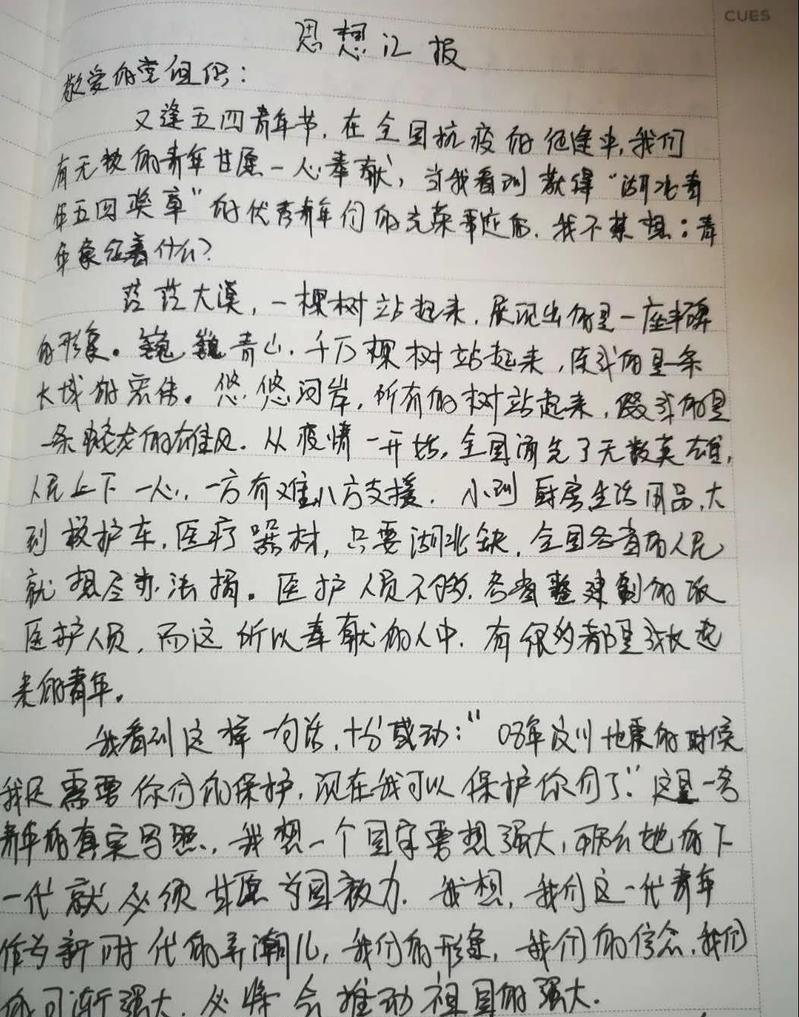 CUES
思想汇报
敬爱的党组织：
又逢五四青年节，在全国抗疫的征途中，我们
有无数的青年甘愿一心奉献，当我看到获得“湖北青
年五四奖章”的优秀青年们的光荣事迹后，我不禁想：青
年象征着什么？
茫茫大漠，一棵树站起来，展现出的是一座丰碑
的形象。巍巍青山，千万棵树站起来，连成的是一条
长城的宏伟。悠悠河岸，所有的树站起来，汇成的是
一条蛟龙的雄风。从疫情一开始，全国涌先了无数英雄，
人民上下一心，一方有难八方支援，小到厨房生活用品，大
到救护车，医疗器材，只要湖北缺，全国各省的人民
就想尽办法捐。医护人员不够，各省整建制的派
医护人员，而这所以奉献的人中，有很多都是成长起
来的青年。
我看到这样一句话，十分感动：“08年汶川地震的时候
我只需要你们的保护，现在我可以保护你们了”这是一名
青年的真实写照，我想一个国家要想强大，那么她的下
一代就必须甘愿为国效力。我想，我们这一代青年
作为新时代的弄潮儿，我们的形象，我们的信念，我们
的日渐强大，必将会推动祖国的强大.